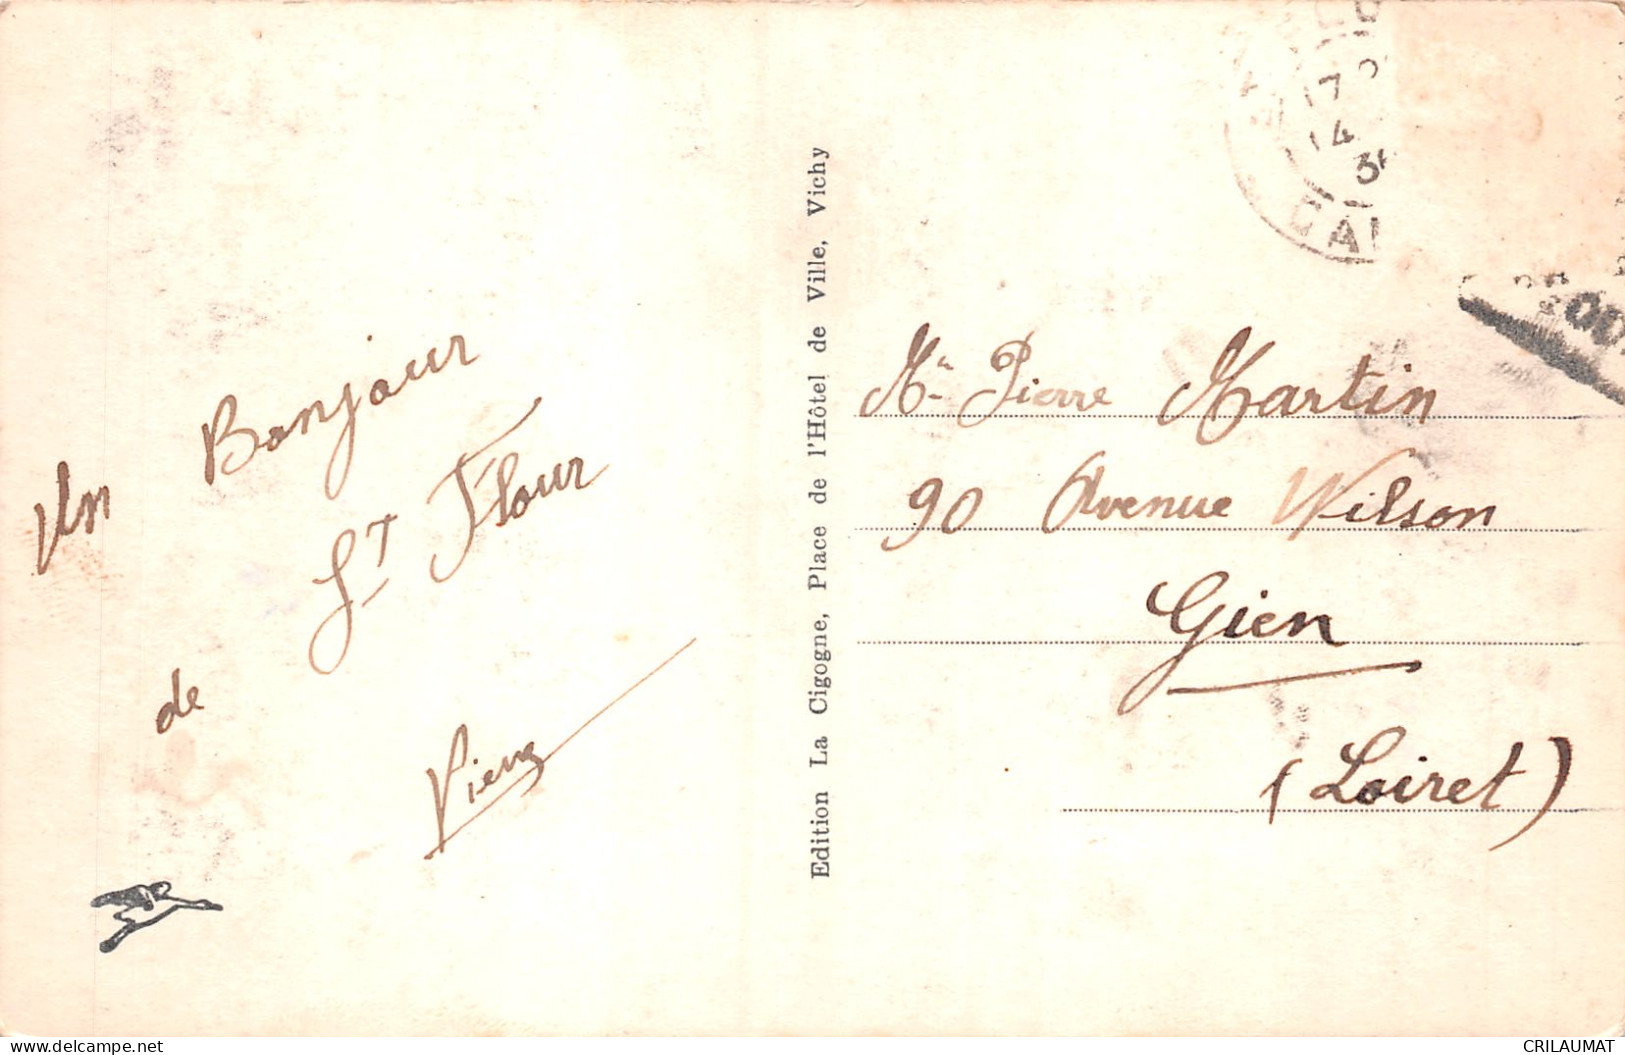 Un Bonjour
de St Flour
Pierre
Edition La Cigogne, Place de l'Hôtel de Ville, Vichy
17
14
CA
Mr Pierre Martin
90 Avenue Wilson
Gien
(Loiret)
www.delcampe.net
CRILAUMAT